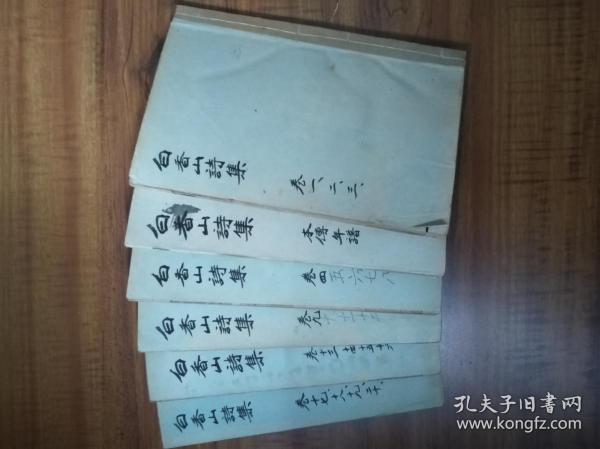 白香山詩集
卷一、二、三、
白香山詩集
本傳年譜
白香山詩集
卷四五六七八
白香山詩集
卷九十
白香山詩集
卷十三十四十五十六
白香山詩集
卷十七、十八、十九、二十、
孔夫子旧书网
www.kongfz.com